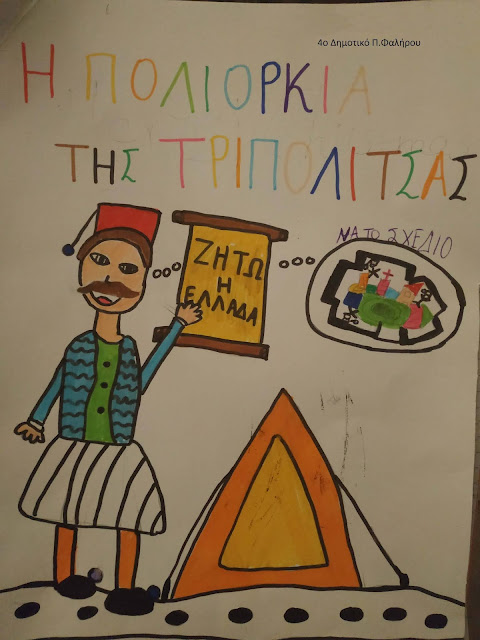 4ο Δημοτικό Π.Φαλήρου
Η ΠΟΛΙΟΡΚΙΑ
ΤΗΣ ΤΡΙΠΟΛΙΤΣΑΣ
ΝΑ ΤΟ ΣΧΕΔΙΟ
ΖΗΤΩ
Η
ΕΛΛΑΔΑ